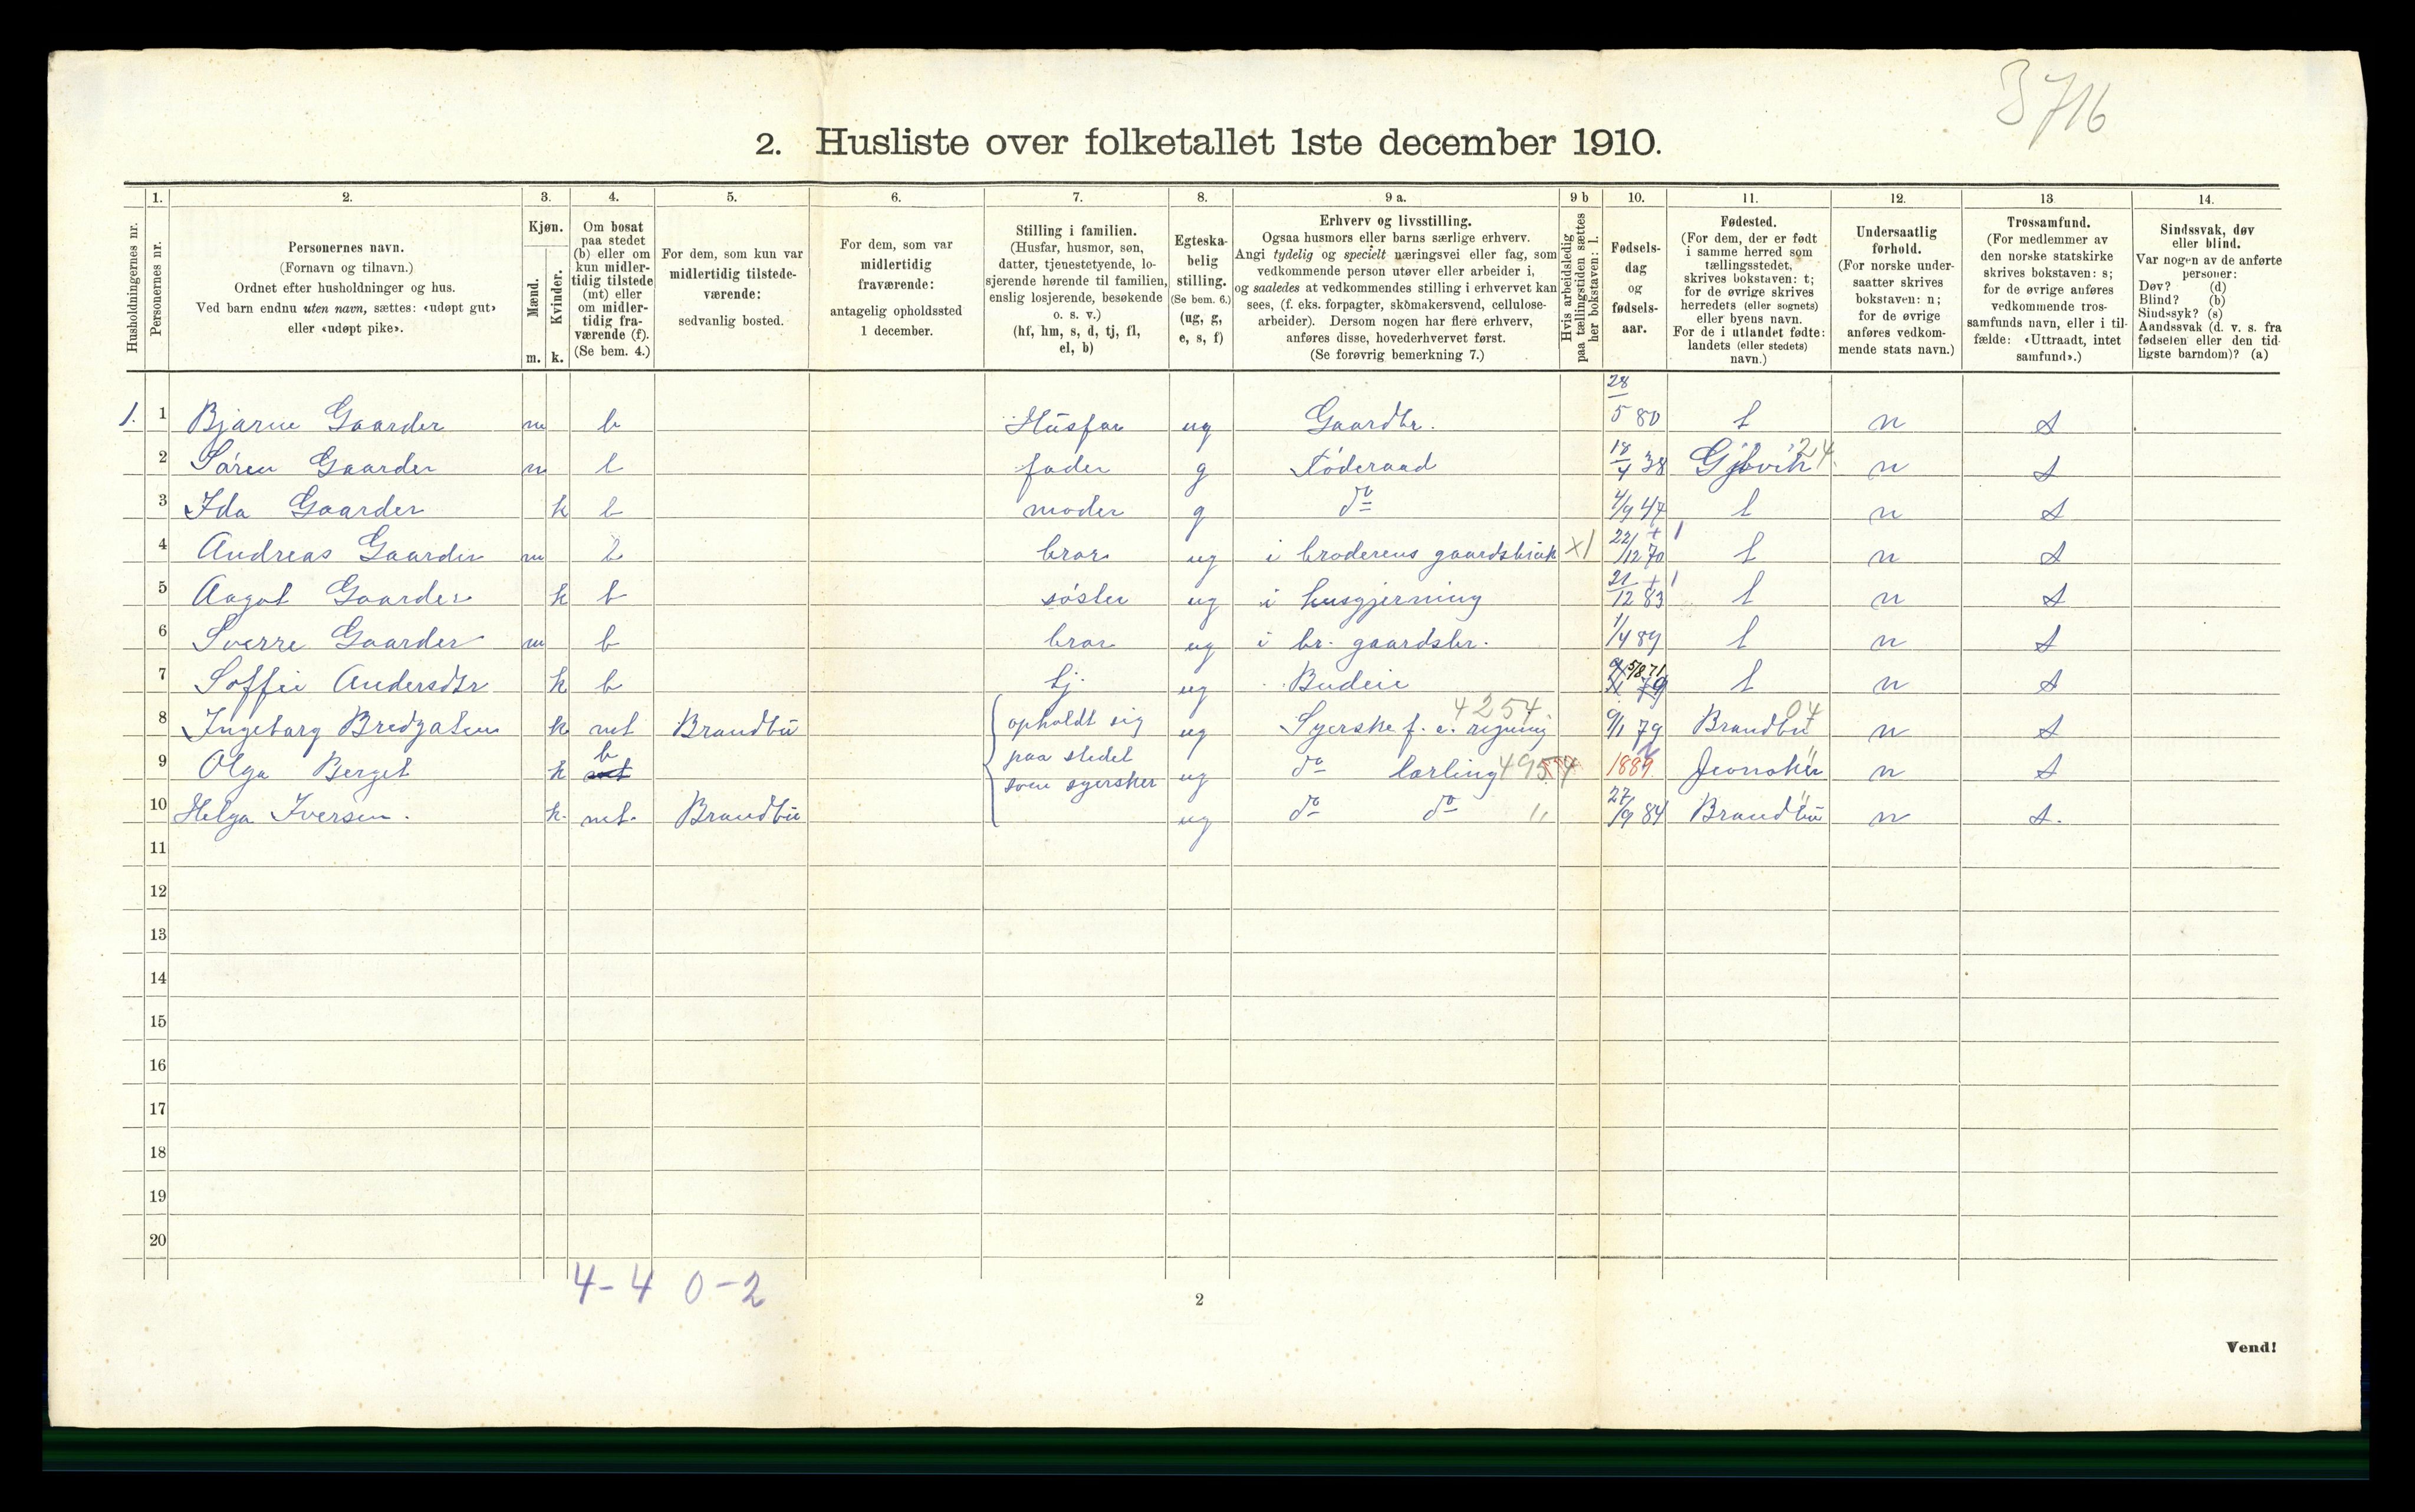 3716
2. Husliste over folketallet 1ste december 1910.
Husholdningernes nr.
1. Personernes nr.
2. Personernes navn.
(Fornavn og tilnavn.)
Ordnet efter husholdninger og hus.
Ved barn endnu uten navn, sættes: «udøpt gut»
eller «udøpt pike».
3. Kjøn.
Mænd. m.
Kvinder. k.
4. Om bosat
paa stedet
(b) eller om
kun midler-
tidig tilstede
(mt) eller
om midler-
tidig fra-
værende (f).
(Se bem. 4.)
5. For dem, som kun var
midlertidig tilstede-
værende:
sedvanlig bosted.
6. For dem, som var
midlertidig
fraværende:
antagelig opholdssted
1 december.
7. Stilling i familien.
(Husfar, husmor, søn,
datter, tjenestetyende, lo-
sjerende hørende til familien,
enslig losjerende, besøkende
o. s. v.)
(hf, hm, s, d, tj, fl,
el, b)
8. Egteska-
belig
stilling.
(Se bem. 6.)
(ug, g,
e, s, f)
9 a. Erhverv og livsstilling.
Ogsaa husmors eller barns særlige erhverv.
Angi tydelig og specielt næringsvei eller fag, som
vedkommende person utøver eller arbeider i,
og saaledes at vedkommendes stilling i erhvervet kan
sees, (f. eks. forpagter, skomakersvend, cellulose-
arbeider). Dersom nogen har flere erhverv,
anføres disse, hovederhvervet først.
(Se forøvrig bemerkning 7.)
9 b Hvis arbeidsledig
paa tællingstiden sættes
her bokstaven: l.
10. Fødsels-
dag
og
fødsels-
aar.
11. Fødested.
(For dem, der er født
i samme herred som
tællingsstedet,
skrives bokstaven: t;
for de øvrige skrives
herredets (eller sognets)
eller byens navn.
For de i utlandet fødte:
landets (eller stedets)
navn.)
12. Undersaatlig
forhold.
(For norske under-
saatter skrives
bokstaven: n;
for de øvrige
anføres vedkom-
mende stats navn.)
13 Trossamfund.
(For medlemmer av
den norske statskirke
skrives bokstaven: s;
for de øvrige anføres
vedkommende tros-
samfunds navn, eller i til-
fælde: «Uttraadt, intet
samfund».)
14. Sindssvak, døv
eller blind.
Var nogen av de anførte
personer:
Døv? (d)
Blind? (b)
Sindssyk? (s)
Aandssvak (d. v. s. fra
fødselen eller den tid-
ligste barndom)? (a)
1. 1 Bjarne Gaarder m b Husfar ug Gaardbr. 28/5 80 t n s
2 Søren Gaarder m b fader g Føderaad 18/4 38 Gjøvik 24 n s
3 Ida Gaarder k b moder g do 4/9 47 t n s
4 Andreas Gaarder m bror ug i broderens gaardsbruk x1 22/12 70 + 1 t n s
5 Aagot Gaarder k b søster ug i husgjerning 21/12 83 + 1 t n s
6 Sverre Gaarder m b bror ug i br. gaardsbr. 1/4 89 t n s
7 Soffie Andersdtr k b tj. ug Budeie 5/8 71 t n s
8 Ingeborg k mt Brandbu opholdt sig ug Syerske f. e. regning 4254 9/1 79 Brandbu 04 n s
9 Olga Berget k b mt paa stedet som syersker ug do lærling 4954 1889 Jevnaker " n s
10 Helga Iversen. k. mt. Brandbu ug do do " 27/9 84 Brandbu " n s.
11
12
13
14
15
16
17
18
19
20
4-4 0-2
2
Vend!